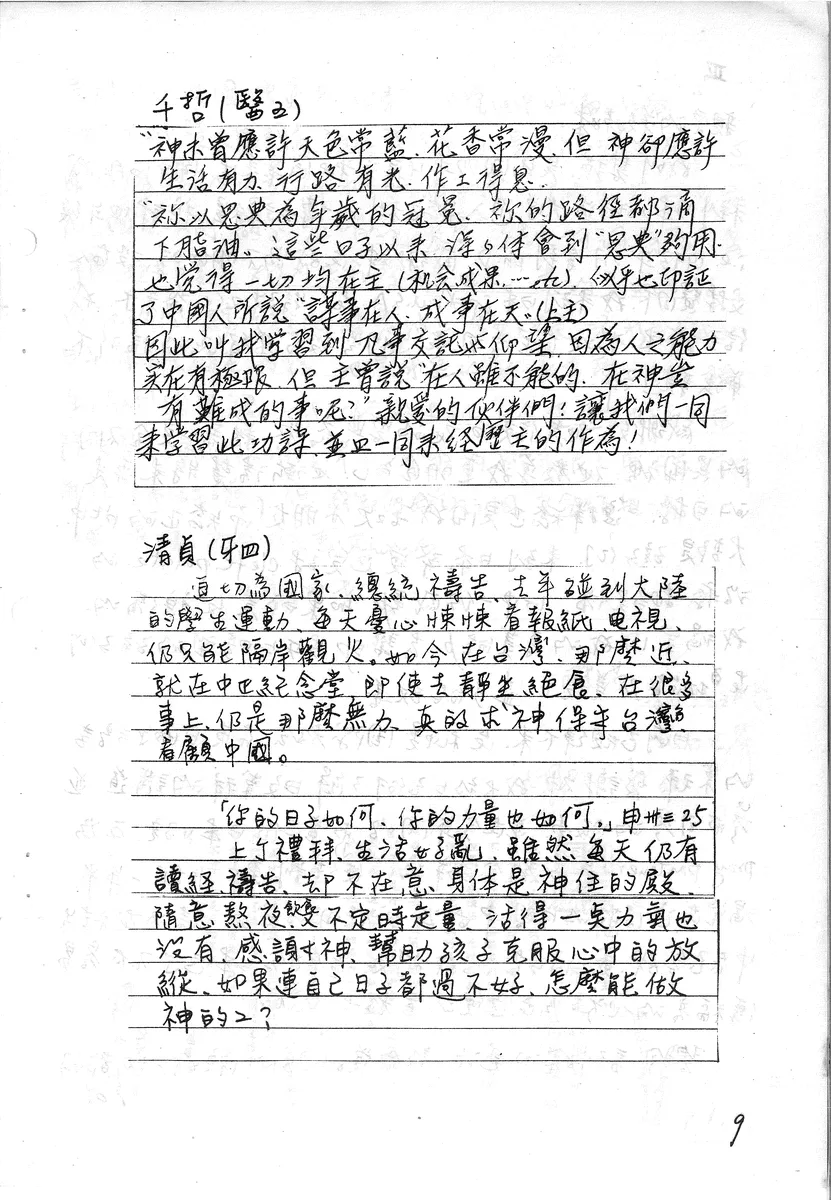 千哲(醫五)
"神未曾應許天色常藍、花香常漫、但 神卻應許
生活有力、行路有光、作工得息、
"祢以恩典為年歲的冠冕、祢的路徑都滴
下脂油。這些日子以來 深々体會到"恩典"夠用、
也覺得一切均在主、(机会成果……), 似乎也印証
了中國人所說"謀事在人、成事在天。(上主)
因此叫我学習到 凡事交託 仰望、因為人之能力
实在有極限、但主曾說"在人雖不能的、在神豈
有難成的事呢?" 親愛的伙伴們! 讓我們一同
來学習此功課、並且一同來経歷主的作為!
清貞(牙四)
迫切為國家、總統禱告、去年碰到大陸
的學生運動、每天憂心悚悚看報紙、电視、
仍只能隔岸觀火。如今在台灣、那麼近、
就在中正紀念堂、即使去靜坐絕食、在很多
事上、仍是那麼無力、真的求神保守台灣、
看顧中國。
「你的日子如何、你的力量也如何。」申卅三25
上了禮拜、生活好亂、雖然每天仍有
讀経、禱告、却不在意身体是神住的殿、
隨意熬夜、餐不定時定量、活得一点力氣也
沒有、感謝神、幫助孩子克服心中的放
縱、如果連自己日子都過不好、怎麼能做
神的工?
9